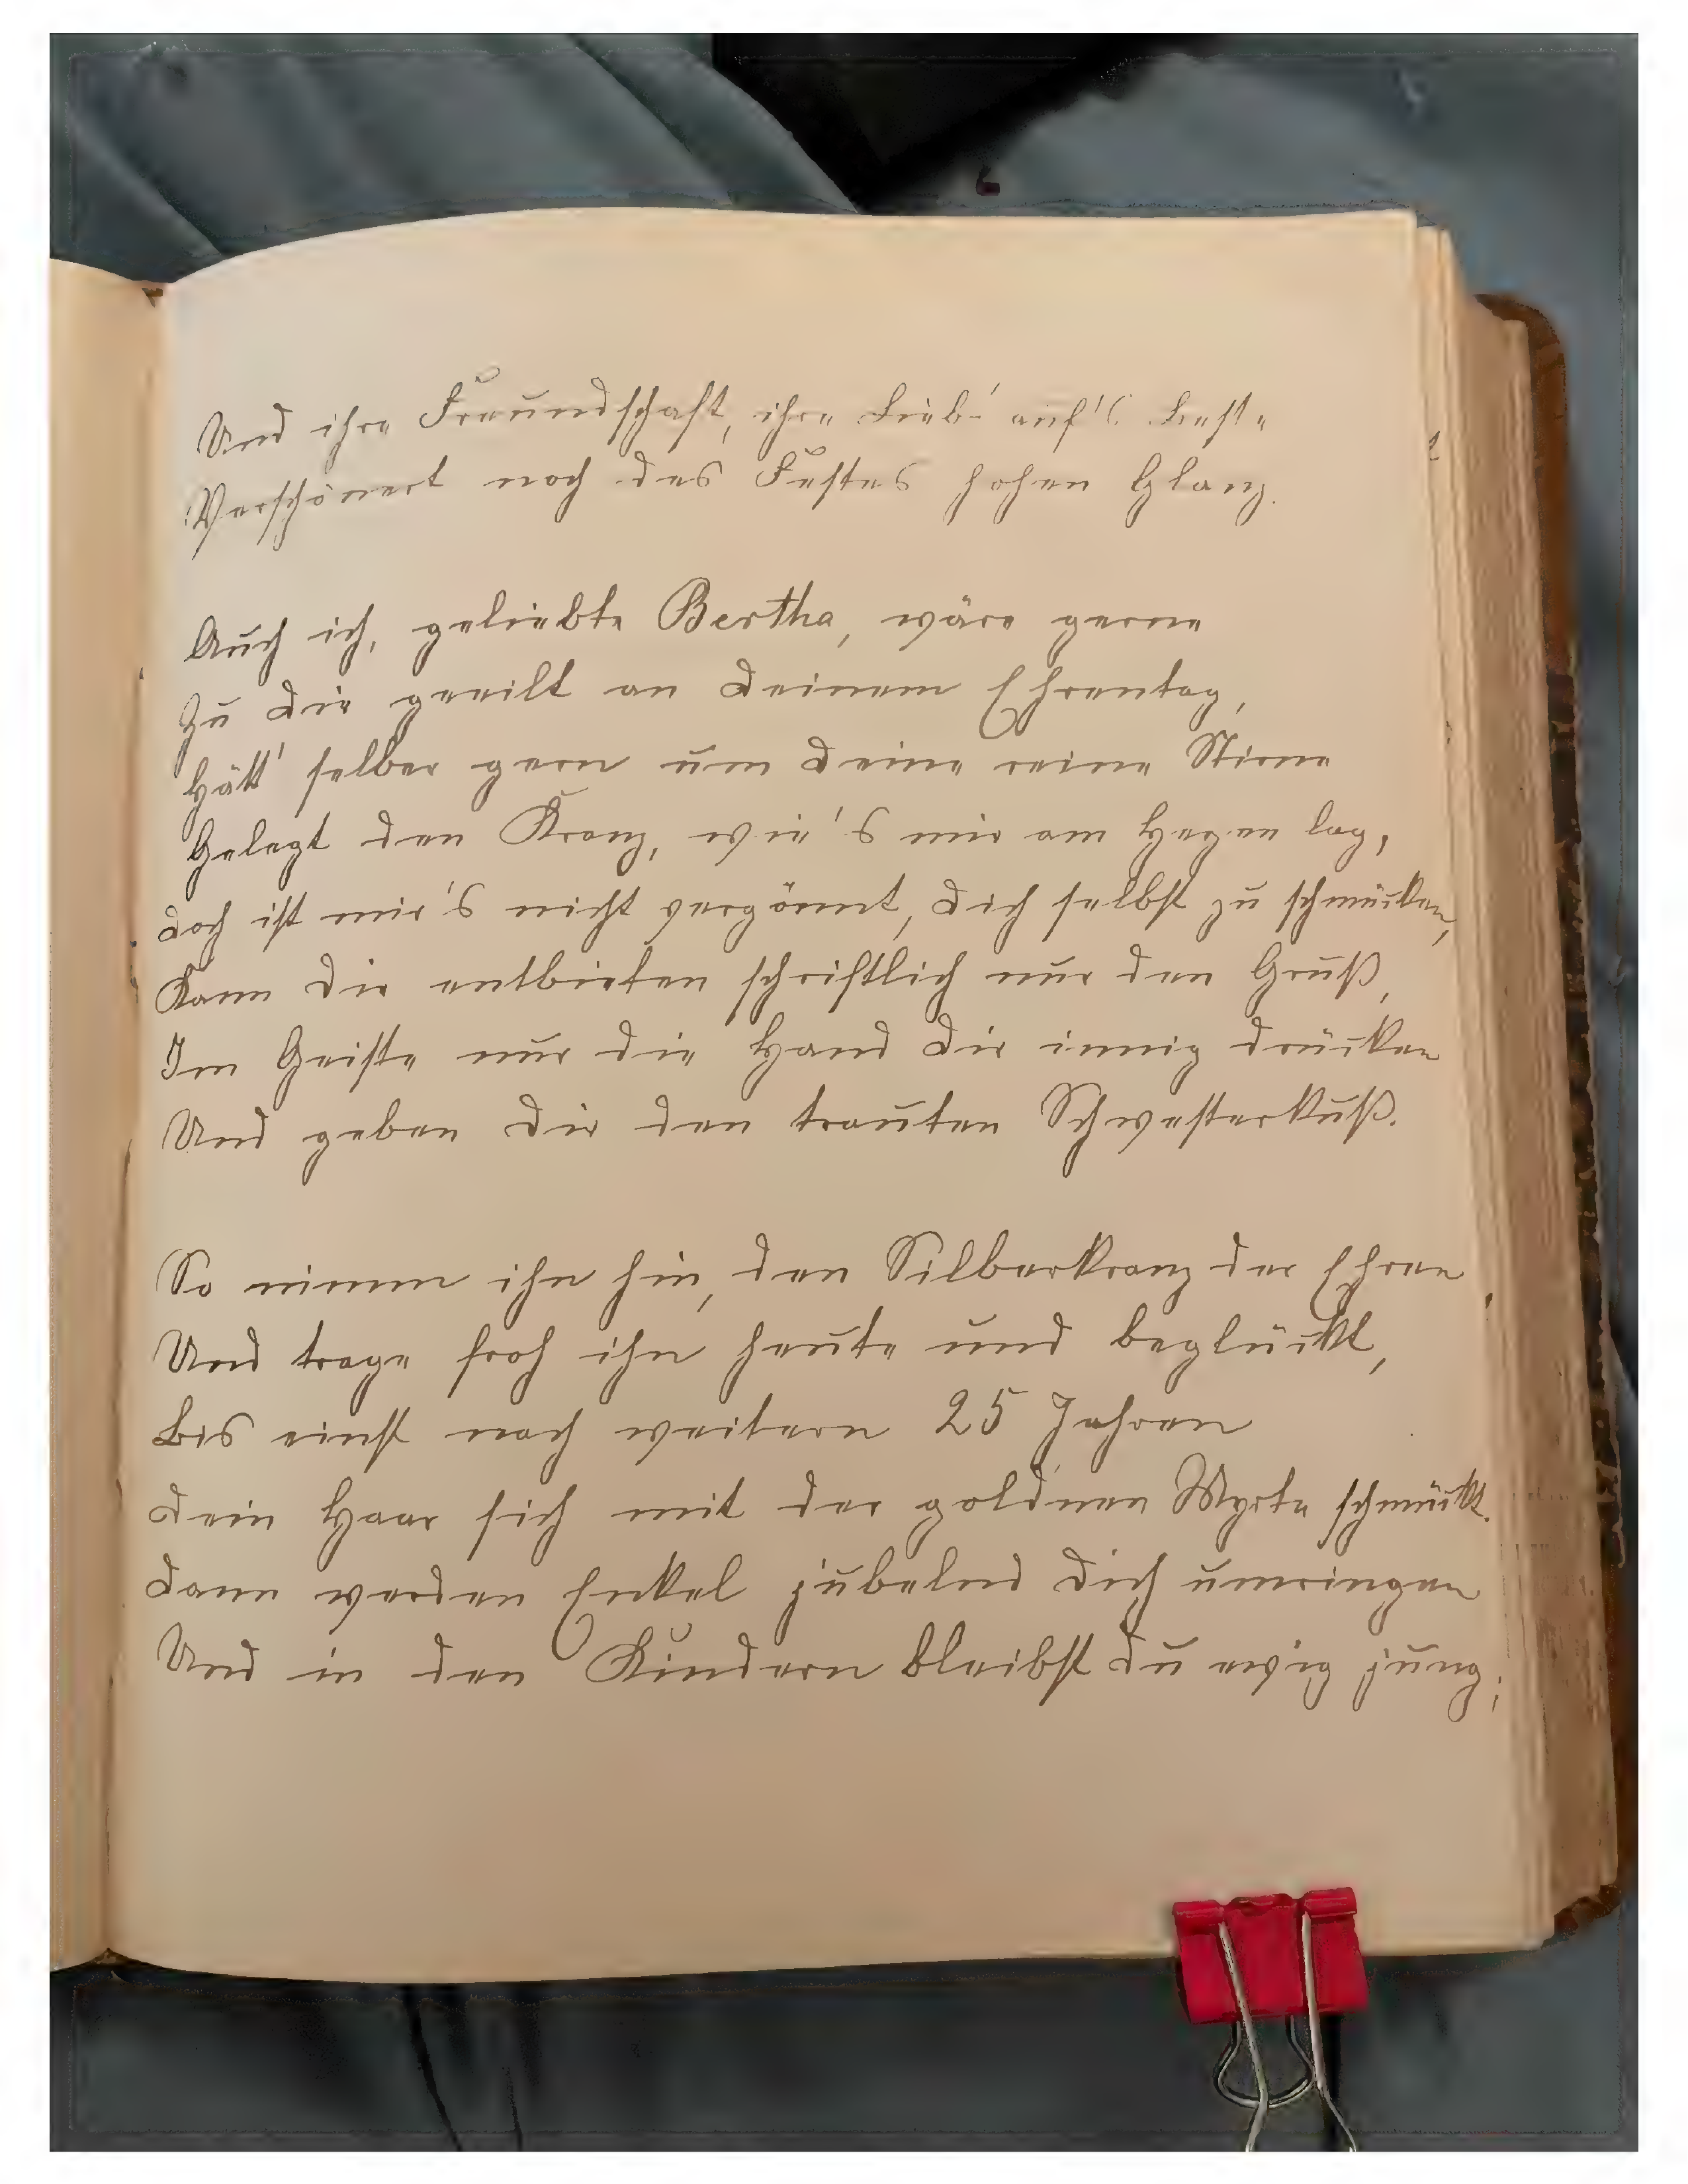 Und ihre Freundschaft, ihre Lieb' auf's Beste
Verschönert noch des Festes hohen Glanz.
Auch ich, geliebte Bertha, wäre gerne
Zu Dir geeilt an Deinem Ehrentag,
Hätt' selber gern um Deine reine Stirne
Gelegt den Kranz, wie's mir am Herzen lag,
Doch ist mir's nicht vergönnt, Dich selbst zu schmücken,
Kann Dir entbieten schriftlich nur den Gruß,
Im Geiste nur die Hand Dir innig drücken
Und geben Dir den trauten Schwesterkuß.
So nimm ihn hin, den Silberkranz der Ehren
Und trage froh ihn heute und beglückt,
Bis einst nach weitern 25 Jahren
Dein Haar sich mit der gold'nen Myrte schmückt.
Dann werden Enkel jubelnd Dich umringen
Und in den Kindern bleibst Du ewig jung;